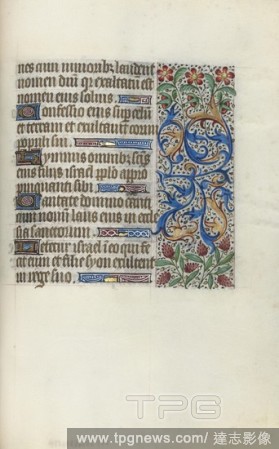 nes cum iunioribz laudent
nomen dnī qr exaltatū est
nomen eius solius
Confessio eius sup celū
et terram et exaltavit cornu
populi sui
Hymnus omnibz scis
eius filiis isrl pplo appro
pinquanti sibi
Cantate domino canti
cum novum laus eius in eccle
sia sanctorum
Letetur israel in eo qui fe
cit eum et filie syon exultent
in rege suo
TPG
www.tpgnews.com/ 達志影像